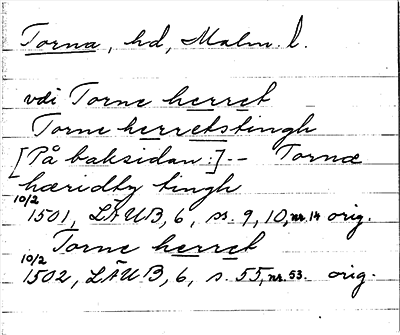 Torna, hd, Malm. l.
vdi Torne herret
Torne herretstingh
[På baksidan:]-- Tornæ
hæridtz tingh
10/2 1501, LÄUB, 6, ss. 9, 10, nr. 14 orig.
Torne herret
10/2 1502, LÄUB, 6, s. 55, nr. 53. orig.